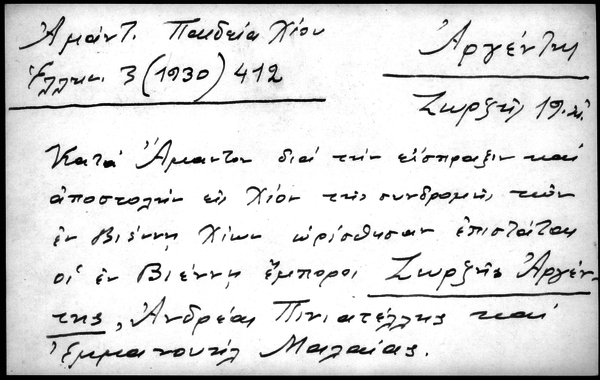 Ἀμάντ. Παιδεία Χίου
Ἑλλην. 3 (1930) 412
Ἀργέντης
Ζωρζῆς 19. αἰ.
Κατά Ἄμαντον διά τήν εἴσπραξιν καί
ἀποστολήν εἰς Χίον τῆς συνδρομῆς τῶν
ἐν Βιέννῃ Χίων ὡρίσθησαν ἐπιστάται
οἱ ἐν Βιέννῃ ἔμποροι Ζωρζῆς Ἀργέν-
της, Ἀνδρέας Πινιατέλλης καί
Ἐμμανουήλ Μαλαίας.